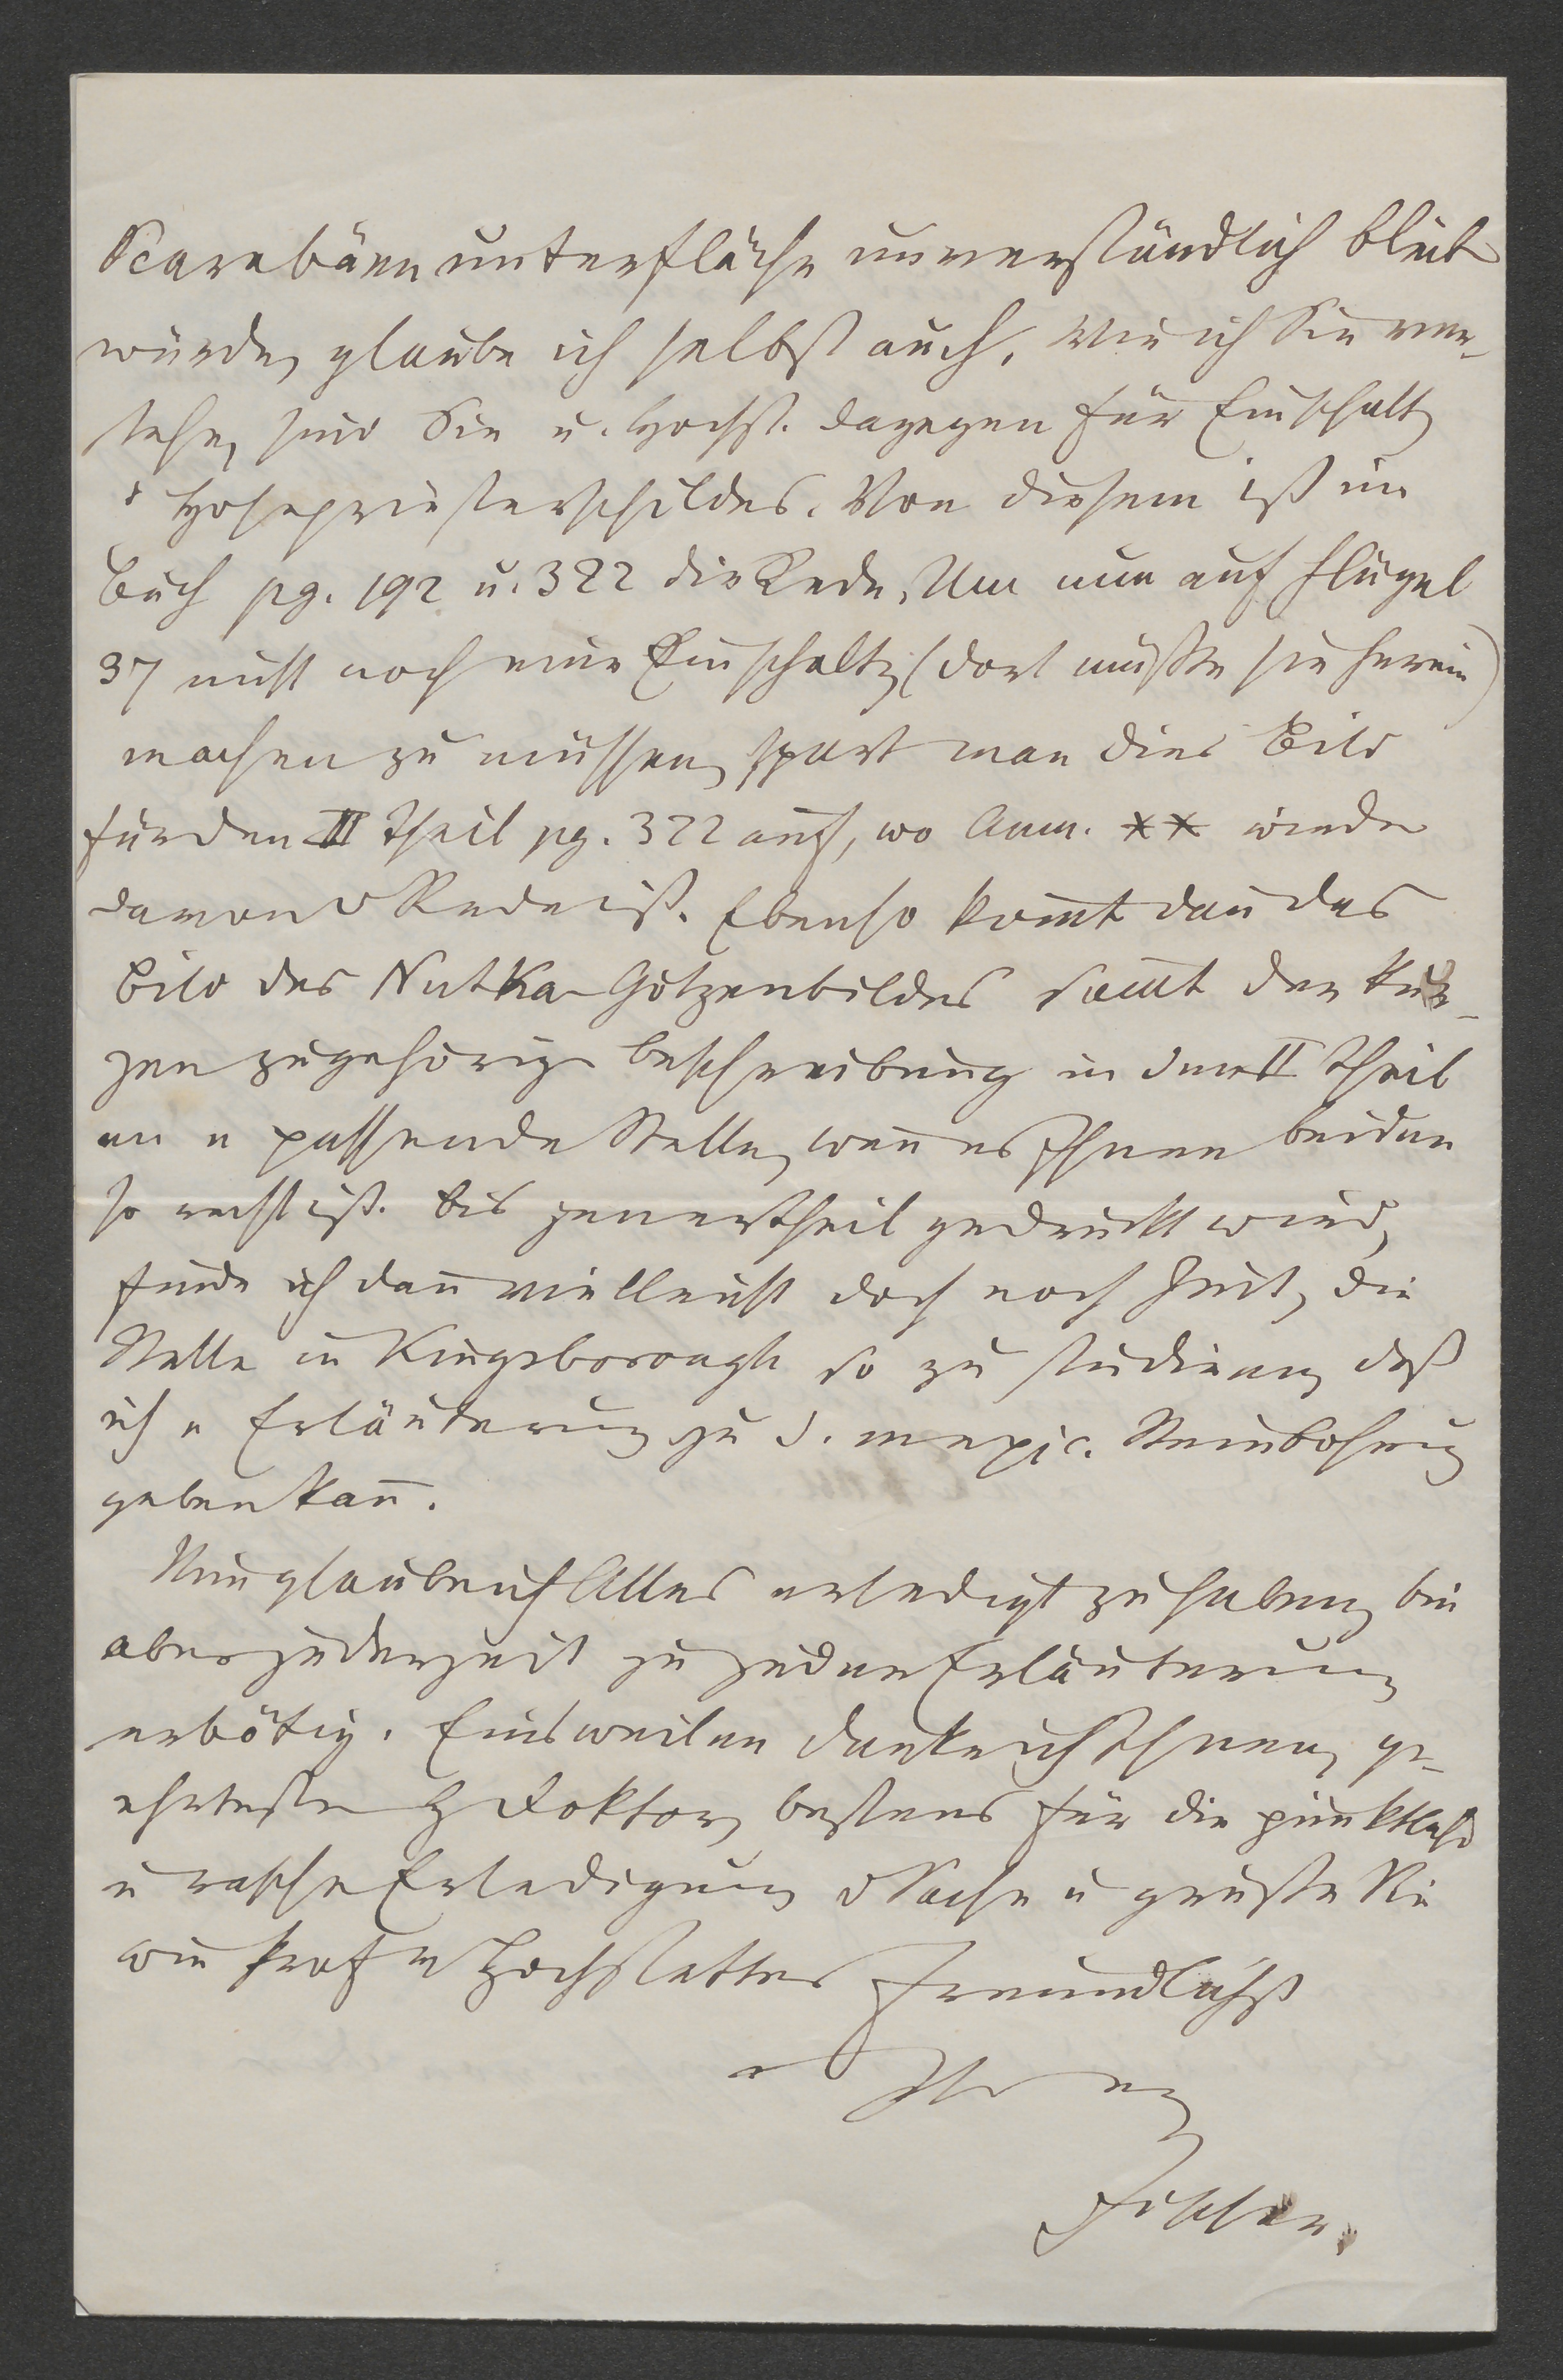 Scarabäenunterfläche unverständlich bleiben
würde, glaube ich selbst auch. Wie ich Sie ver-
stehe, sind Sie u. Hochst. dagegen für Einschaltg
d Hohepriesterschildes. Von diesem ist im
Buch pg. 192 u. 322 die Rede. Um nun auf Flügel
37 nicht noch eine Einschaltg (dort müßte sie herein)
machen zu müssen, spart man dies Bild
für den II Theil pg. 322 auf, wo Anm. ** wieder
davon d Rede ist. Ebenso kom̄t dan̄ das
Bild des Nutka-Götzenbildes sam̄t der kur-
zen zugehörigen Beschreibung in den II Theil
an e passende Stelle, wen̄ es Ihnen beiden
so recht ist. Bis jener Theil gedruckt wird,
finde ich dan̄ vielleicht doch noch Zeit, die
Stelle in Kingsborough so zu studieren, daß
ich e Erläuterung zu d. mexic. Steinbohrung
geben kan̄.
Nun glaube ich Alles erledigt zu haben, bin
aber jederzeit zu jeder Erläuterung
erbötig. Einstweilen danke ich Ihnen, ge-
ehrtester H Doktor, bestens für die pünktliche
u rasche Erledigung d Sache u grüße Sie
wie Prof v Hochstetter freundlichst
Ihr erg
Fischer.